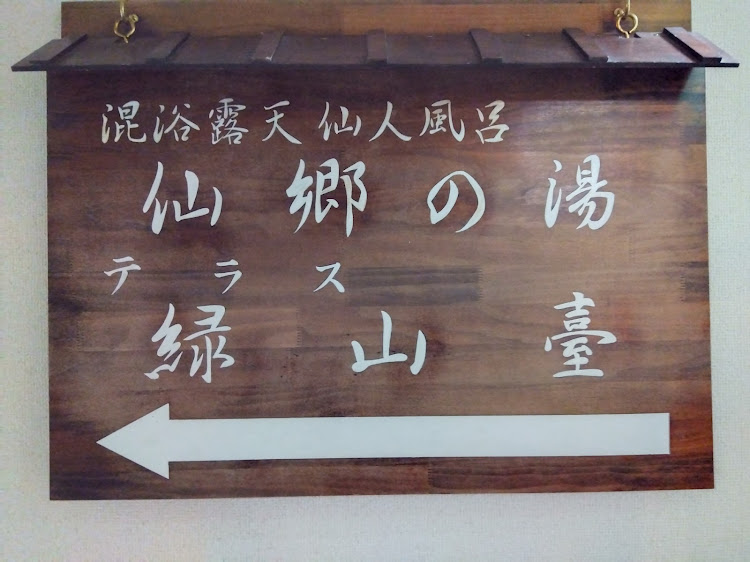 混浴露天仙人風呂
仙郷の湯
テラス
緑山臺